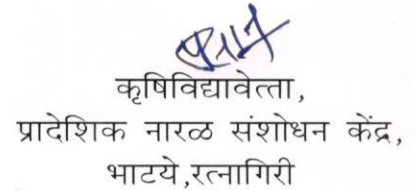 कृषिविद्यावेत्ता,
प्रादेशिक नारळ संशोधन केंद्र,
भाटये,रत्नागिरी